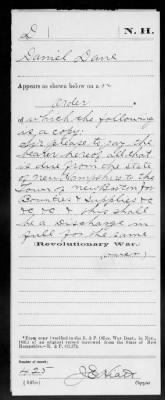 D
N. H.
Daniel Dane
Appears as shown below on a
order
of which the following
is a copy:
Sir please to pay the
bearer hereof all that
is due from the state
of New Hampshire to the
Town of New Boston for
Bounties & Supplies &c
&c, &c & this shall
be a Discharge in
full for the same
Revolutionary War.
*From copy (verified in the R. & P. Office, War Dept., in Nov.,
of an original record borrowed from the State of New
Hampshire—R. & P.
Number of record:
425
Copyist.